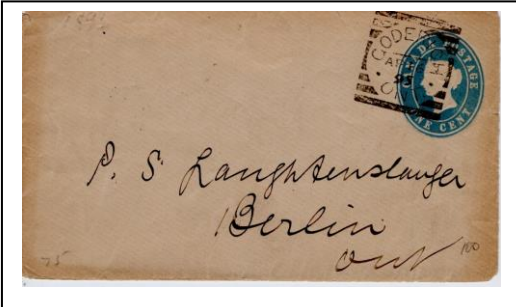 CANADA POSTAGE
ONE CENT
P. S. Laughtenslauger
Berlin
Ont
75
100